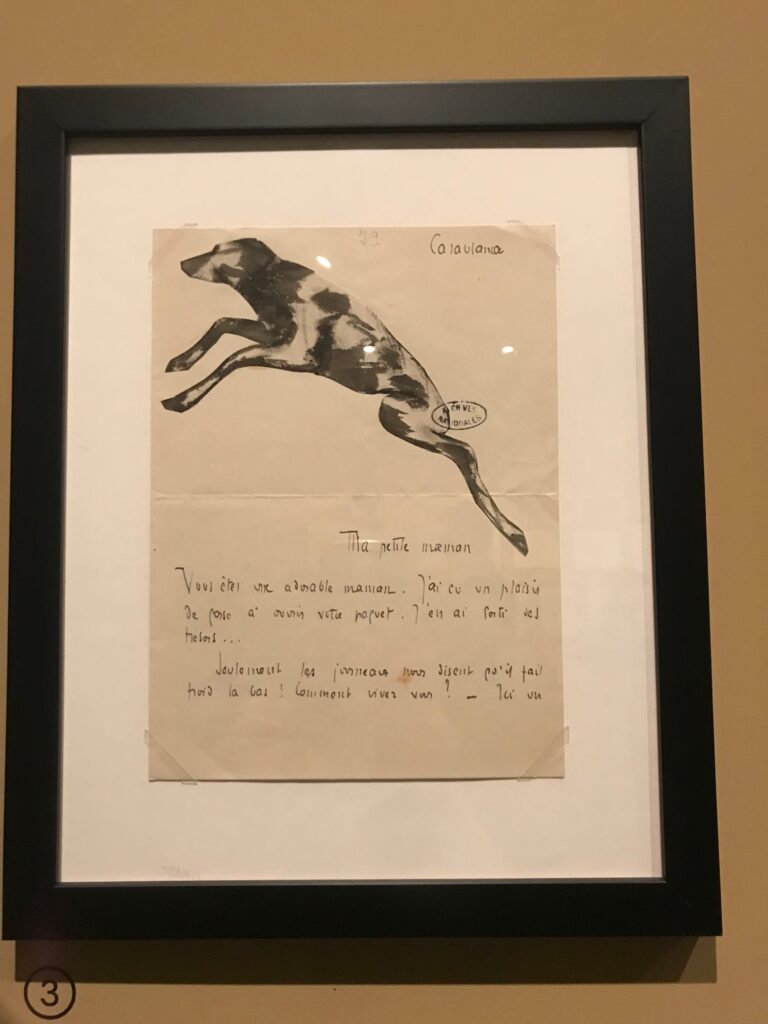 Casablanca
Ma petite maman
Vous êtes une adorable maman. J'ai eu un plaisir
de gosse à ouvrir votre paquet. J'en ai sorti des
trésors...
Seulement les journeaux nous disent qu'il fait
froid la bas ! Comment vivez vous ? — Ici un
ARCHIVES
NATIONALES
3